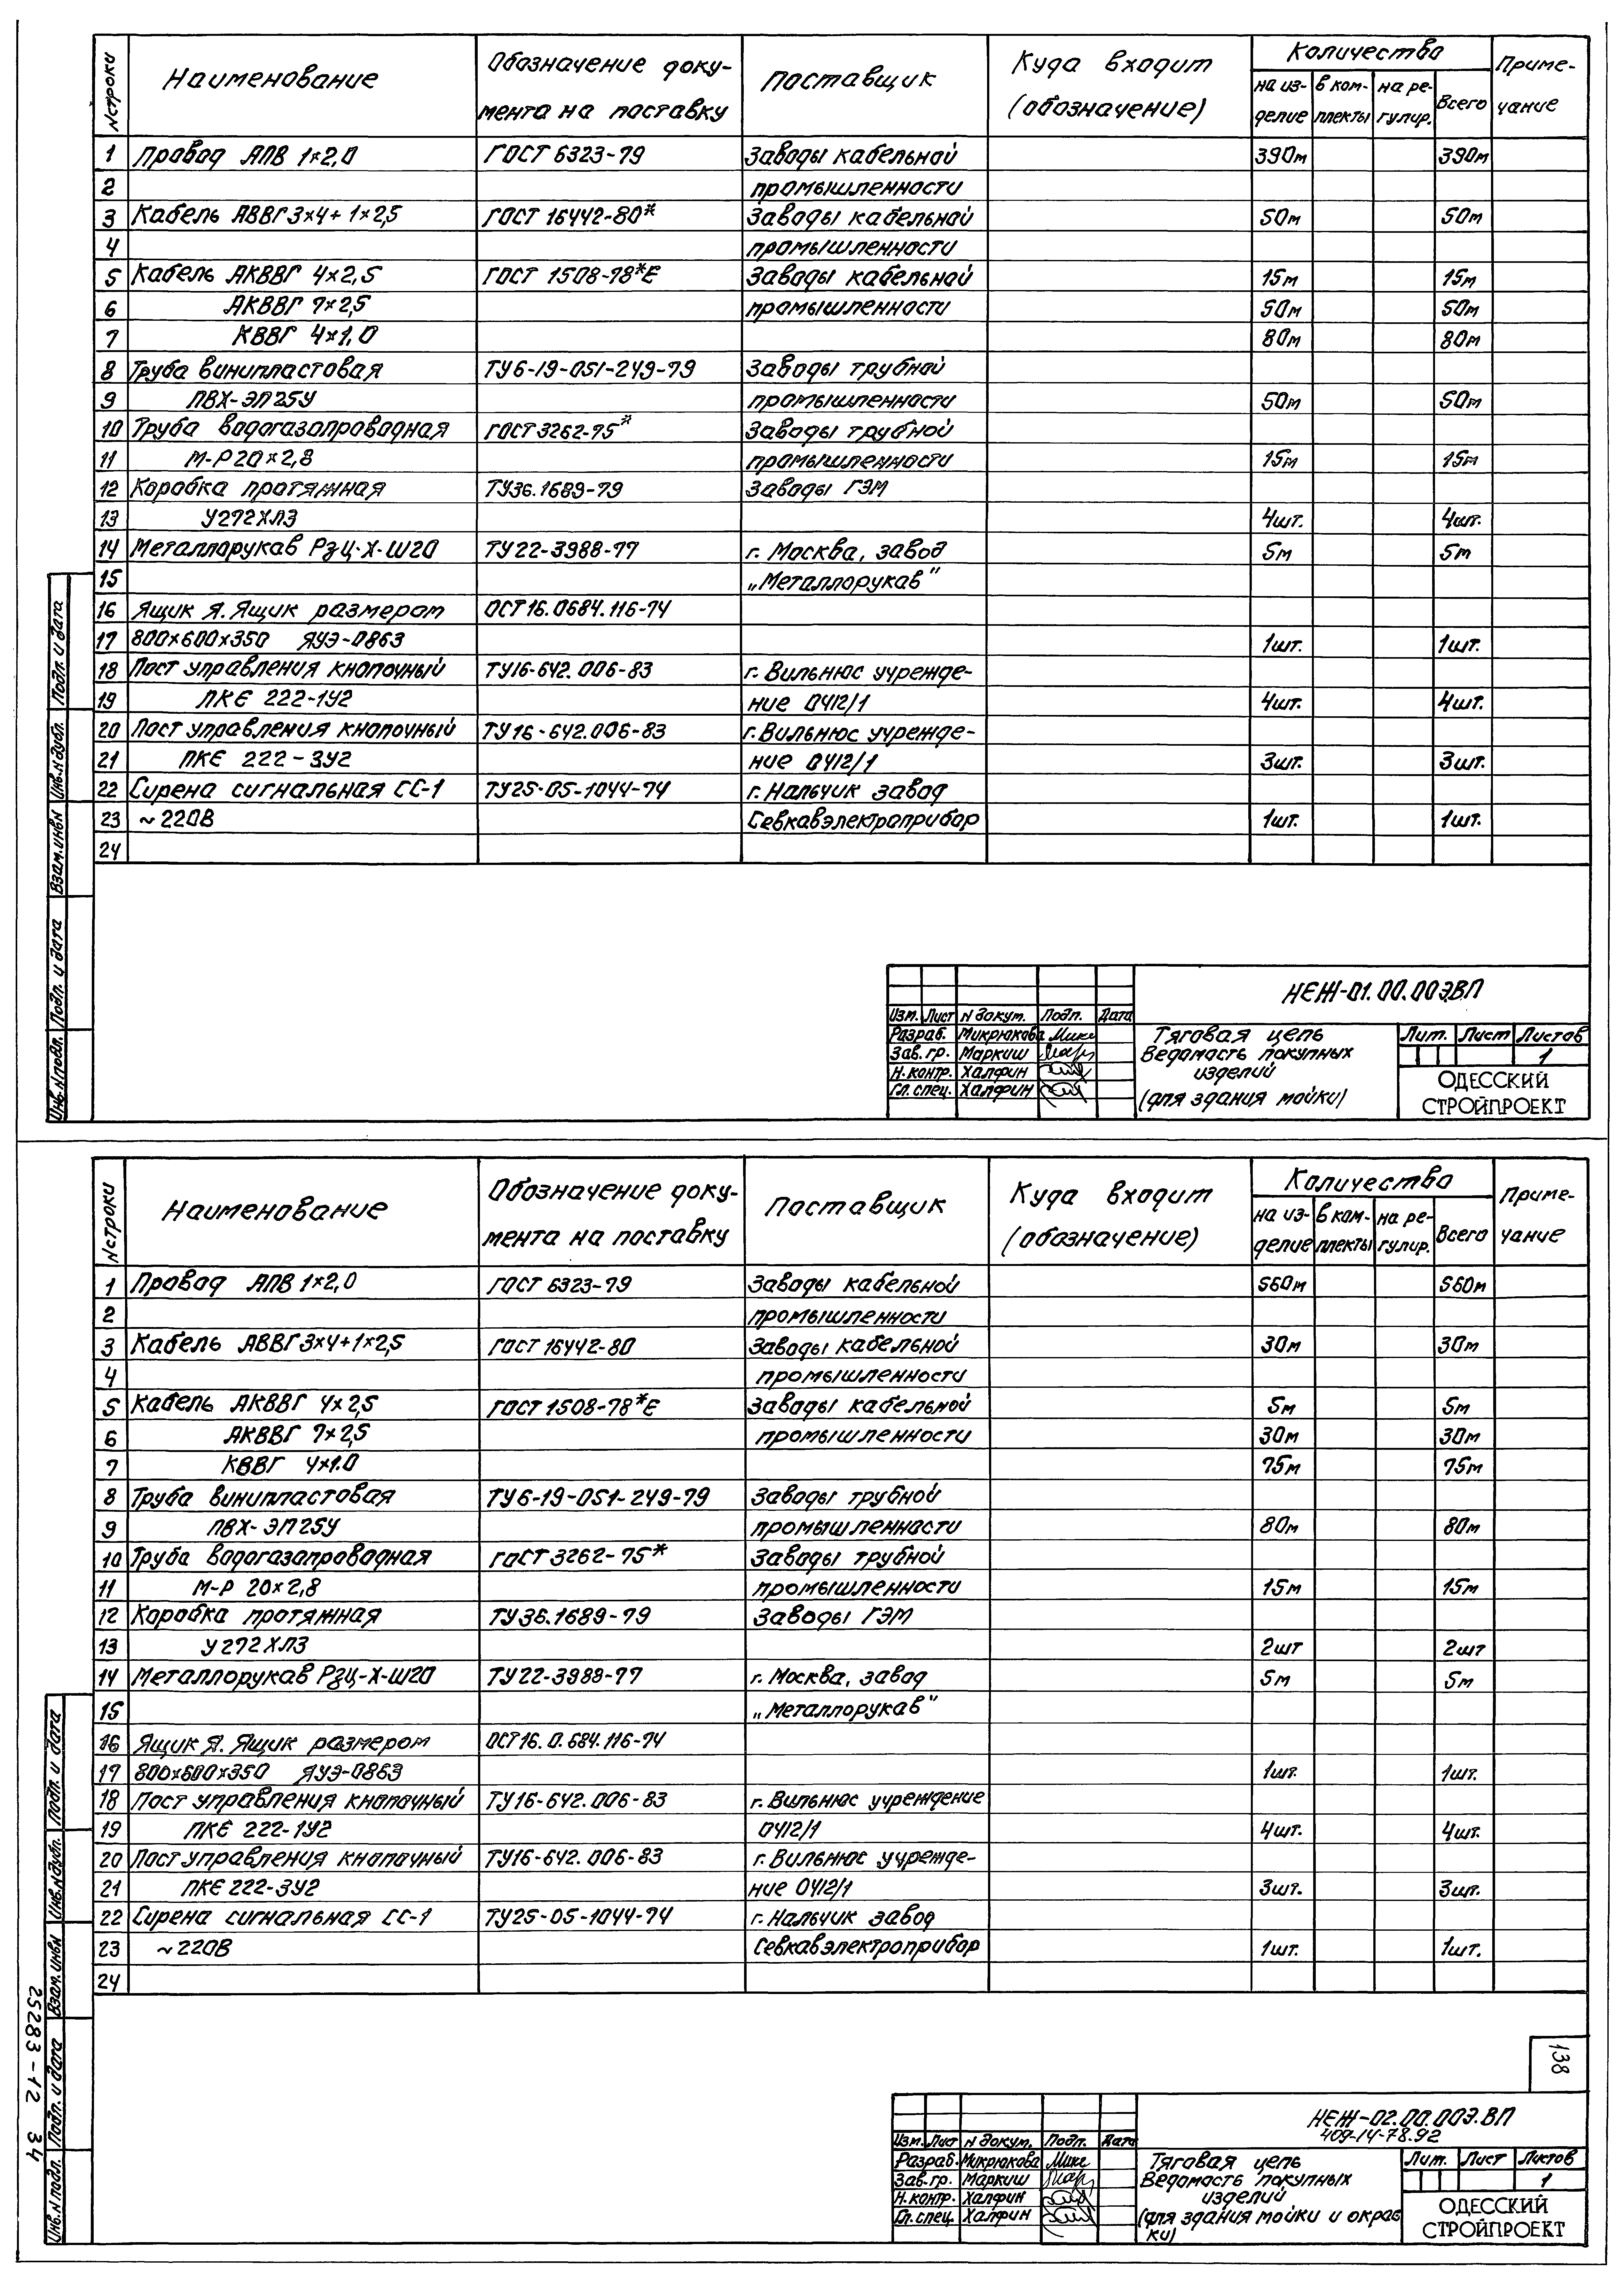 N строки Наименование Обозначение доку- Поставщик Куда входит Количество Приме-
мента на поставку (обозначение) на из- в ком- на ре- Всего чание
делие плекты гулир.
1 Провод АПВ 1×2,0 ГОСТ 6323-79 Заводы кабельной 390м 390м
2 промышленности
3 Кабель АВВГ 3×4+1×2,5 ГОСТ 16442-80* Заводы кабельной 50м 50м
4 промышленности
5 Кабель АКВВГ 4×2,5 ГОСТ 1508-78*Е Заводы кабельной 15м 15м
6 АКВВГ 7×2,5 промышленности 50м 50м
7 КВВГ 4×1,0 80м 80м
8 Труба винипластовая ТУ6-19-051-249-79 Заводы трубной
9 ПВХ-ЭП25У промышленности 50м 50м
10 Труба водогазопроводная ГОСТ 3262-75* Заводы трубной
11 М-Р20×2,8 промышленности 15м 15м
12 Коробка протяжная ТУ36.1689-79 Заводы ГЭМ
13 У272ХЛ3 4шт. 4шт.
14 Металлорукав РзЦ-Х-Ш20 ТУ22-3988-77 г. Москва, завод 5м 5м
15 „Металлорукав"
16 Ящик Я. Ящик размером ОСТ16.0684.116-74
17 800×600×350 ЯУЭ-0863 1шт. 1шт.
18 Пост управления кнопочный ТУ16-642.006-83 г. Вильнюс учрежде-
19 ПКЕ 222-1У2 ние ОЧ12/1 4шт. 4шт.
20 Пост управления кнопочный ТУ16-642.006-83 г. Вильнюс учрежде-
21 ПКЕ 222-3У2 ние ОЧ12/1 3шт. 3шт.
22 Сирена сигнальная СС-1 ТУ25-05-1044-74 г. Нальчик завод
23 ~220В Севкавэлектроприбор 1шт. 1шт.
24
Инв.N подл. Подп. и дата Взам.инв N Инв.N дубл. Подп. и дата
НЕЖ-01.00.00Э.ВП
Изм. Лист N докум. Подп. Дата
Разраб. Микрюкова Мике Тяговая цепь Лит. Лист Листов
Зав. гр. Маркиш Ведомость покупных 1
Н. контр. Халфин изделий ОДЕССКИЙ
Гл. спец. Халфин (для здания мойки) СТРОЙПРОЕКТ
N строки Наименование Обозначение доку- Поставщик Куда входит Количество Приме-
мента на поставку (обозначение) на из- в ком- на ре- Всего чание
делие плекты гулир.
1 Провод АПВ 1×2,0 ГОСТ 6323-79 Заводы кабельной 560м 560м
2 промышленности
3 Кабель АВВГ 3×4+1×2,5 ГОСТ 16442-80 Заводы кабельной 30м 30м
4 промышленности
5 Кабель АКВВГ 4×2,5 ГОСТ 1508-78*Е Заводы кабельной 5м 5м
6 АКВВГ 7×2,5 промышленности 30м 30м
7 КВВГ 4×1.0 75м 75м
8 Труба винипластовая ТУ6-19-051-249-79 Заводы трубной
9 ПВХ-ЭП25У промышленности 80м 80м
10 Труба водогазопроводная ГОСТ 3262-75* Заводы трубной
11 М-Р 20×2,8 промышленности 15м 15м
12 Коробка протяжная ТУ36.1689-79 Заводы ГЭМ
13 У272ХЛ3 2шт 2шт
14 Металлорукав РзЦ-Х-Ш20 ТУ22-3988-77 г. Москва, завод 5м 5м
15 „Металлорукав"
16 Ящик Я. Ящик размером ОСТ16.0.684.116-74
17 800×600×350 ЯУЭ-0863 1шт. 1шт.
18 Пост управления кнопочный ТУ16-642.006-83 г. Вильнюс учреждение
19 ПКЕ 222-1У2 ОЧ12/1 4шт. 4шт.
20 Пост управления кнопочный ТУ16-642.006-83 г. Вильнюс учрежде-
21 ПКЕ 222-3У2 ние ОЧ12/1 3шт. 3шт.
22 Сирена сигнальная СС-1 ТУ25-05-1044-74 г. Нальчик завод
23 ~220В Севкавэлектроприбор 1шт. 1шт.
24
Инв.N подл. Подп. и дата Взам.инв N Инв.N дубл. Подп. и дата
25283-12 34
138
НЕЖ-02.00.00Э.ВП
409-14-78.92
Изм. Лист N докум. Подп. Дата
Разраб. Микрюкова Мике Тяговая цепь Лит. Лист Листов
Зав. гр. Маркиш Ведомость покупных 1
Н. контр. Халфин изделий ОДЕССКИЙ
Гл. спец. Халфин (для здания мойки и окрас СТРОЙПРОЕКТ
ки)